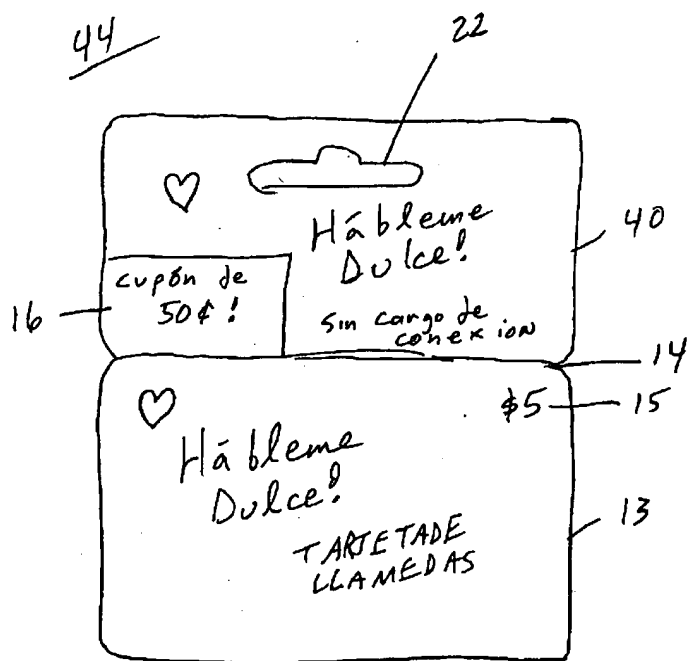 44
22
Hábleme
Dulce!
40
cupón de
50¢!
16
sin cargo de
conexion
14
$5
15
Hábleme
Dulce!
13
TARJETADE
LLAMEDAS